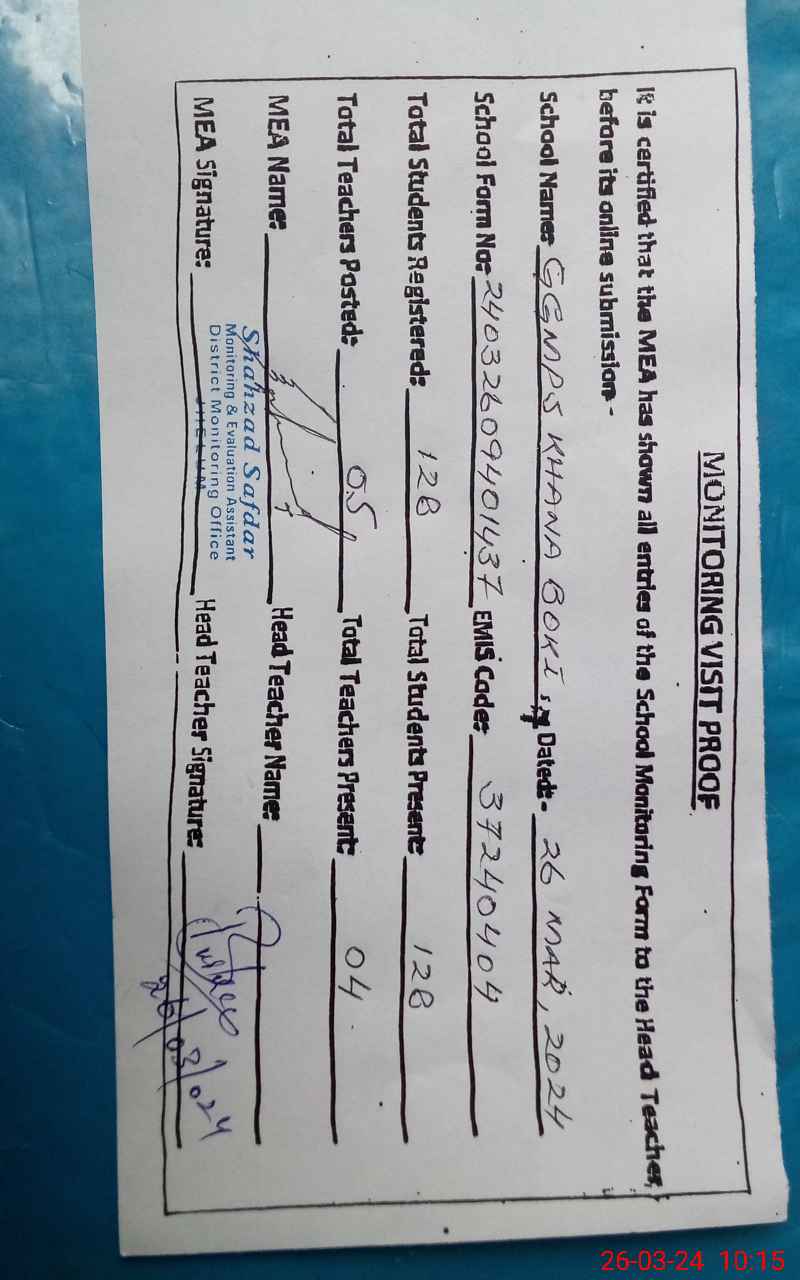 MONITORING VISIT PROOF
It is certified that the MEA has shown all entries of the School Monitoring Form to the Head Teacher,
before its online submission.-
School Name: GGMPS KHANA BOKI Dated:- 26 MAR, 2024
School Form No: 24032609401437 EMIS Code: 37240404
Total Students Registered: 128 Total Students Present: 128
Total Teachers Posted: 05 Total Teachers Present: 04
MEA Name: Head Teacher Name:
Shahzad Safdar
Monitoring & Evaluation Assistant
District Monitoring Office
JHELUM
MEA Signature: Head Teacher Signature:
26/03/024
26-03-24 10:15